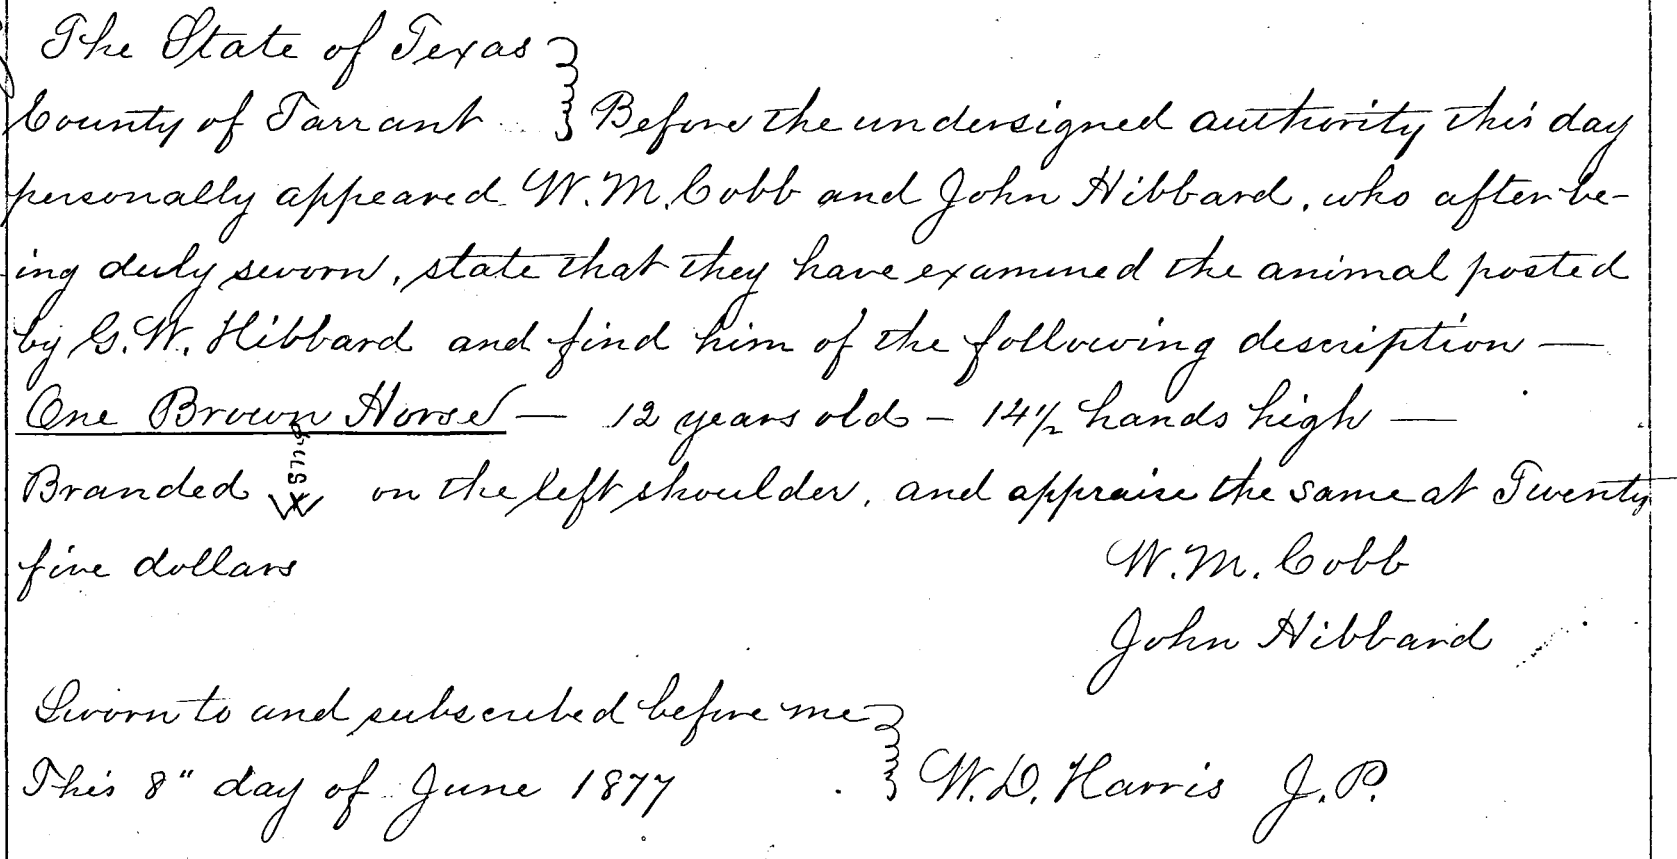 The State of Texas
County of Tarrant } Before the undersigned authority this day
personally appeared W. M. Cobb and John Hibbard, who after be-
ing duly sworn, state that they have examined the animal posted
by G. W. Hibbard and find him of the following description —
One Brown Horse — 12 years old – 14 1/2 hands high —
Branded on the left shoulder, and appraise the same at Twenty
five dollars
W. M. Cobb
John Hibbard
Sworn to and subscribed before me
This 8" day of June 1877 } W. D. Harris J. P.